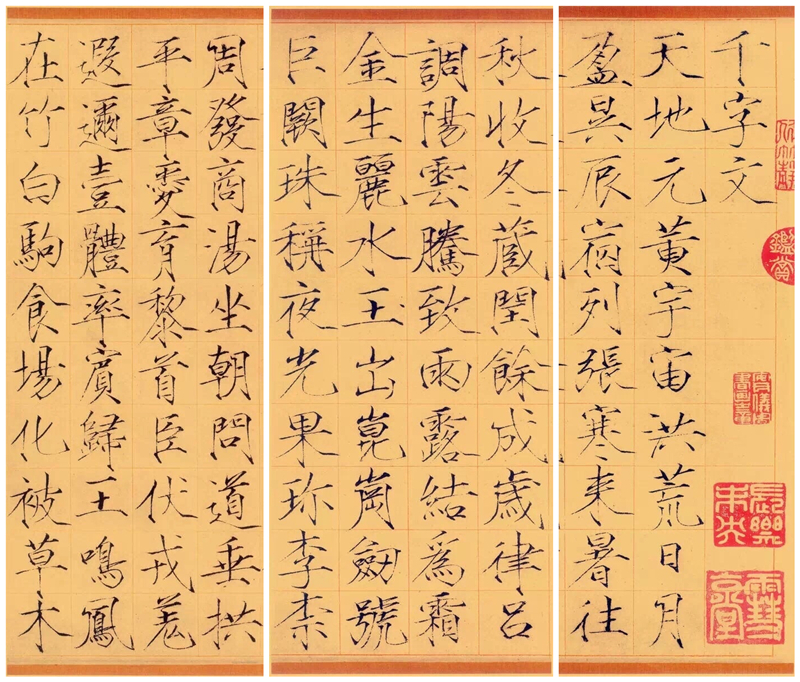 千字文
天地元黃宇宙洪荒日月
盈昃辰宿列張寒来暑往
秋收冬蔵閏餘成歳律呂
調陽雲騰致雨露結爲霜
金生麗水玉出崑崗劒號
巨闕珠稱夜光果珎李柰
周發商湯坐朝問道垂拱
平章愛育黎首臣伏戎羌
遐邇壹體率賓歸王鳴鳳
在竹白駒食場化被草木
鑑賞
長樂未央